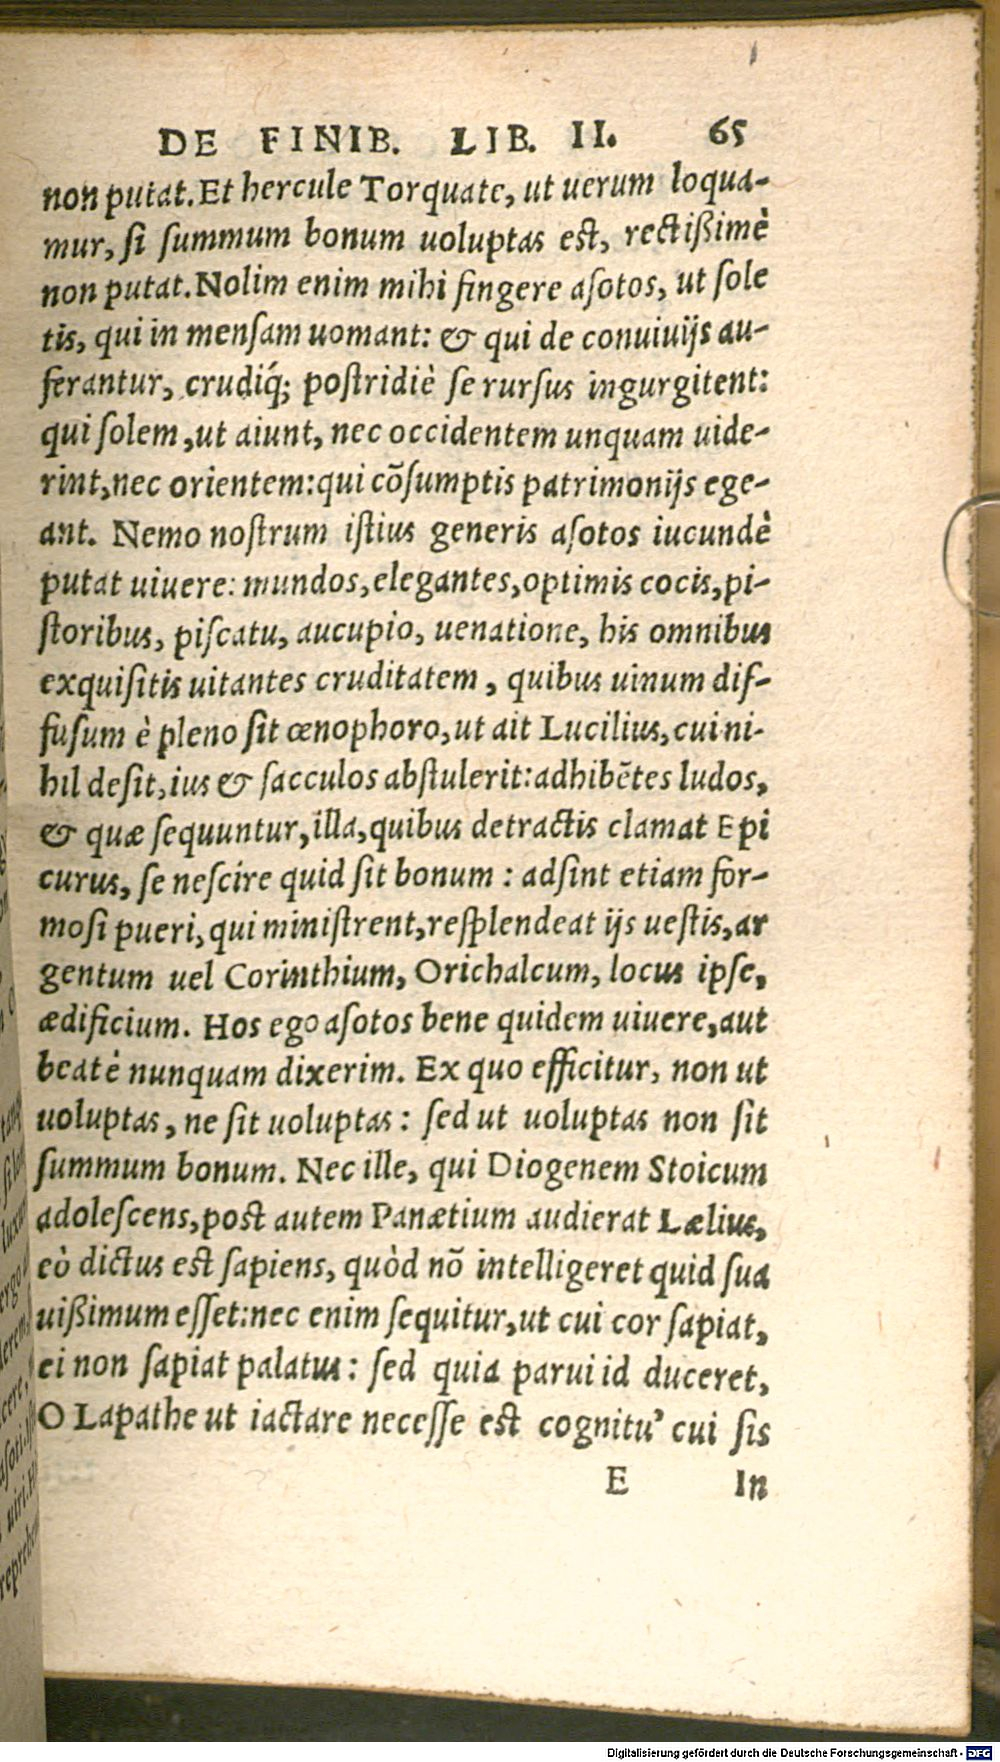 DE FINIB. LIB. II. 65
non putat. Et hercule Torquate, ut uerum loqua-
mur, ſi ſummum bonum uoluptas eſt, rectißimè
non putat. Nolim enim mihi fingere aſotos, ut ſole
tis, qui in menſam uomant: & qui de conuiuijs au-
ferantur, crudiq́; poſtridiè ſe rurſus ingurgitent:
qui ſolem, ut aiunt, nec occidentem unquam uide-
rint, nec orientem: qui cõſumptis patrimonijs ege-
ant. Nemo noſtrum iſtius generis aſotos iucundè
putat uiuere: mundos, elegantes, optimis cocis, pi-
ſtoribus, piſcatu, aucupio, uenatione, his omnibus
exquiſitis uitantes cruditatem, quibus uinum diſ-
fuſum è pleno ſit œnophoro, ut ait Lucilius, cui ni-
hil deſit, ius & ſacculos abſtulerit: adhibẽtes ludos,
& quæ ſequuntur, illa, quibus detractis clamat Epi
curus, ſe neſcire quid ſit bonum: adſint etiam for-
moſi pueri, qui miniſtrent, reſplendeat ijs ueſtis, ar
gentum uel Corinthium, Orichalcum, locus ipſe,
ædificium. Hos ego aſotos bene quidem uiuere, aut
beatè nunquam dixerim. Ex quo efficitur, non ut
uoluptas, ne ſit uoluptas: ſed ut uoluptas non ſit
ſummum bonum. Nec ille, qui Diogenem Stoicum
adoleſcens, poſt autem Panætium audierat Lælius,
eò dictus eſt ſapiens, quòd nõ intelligeret quid ſua
uißimum eſſet: nec enim ſequitur, ut cui cor ſapiat,
ei non ſapiat palatus: ſed quia parui id duceret,
O Lapathe ut iactare neceſſe eſt cognitu’ cui ſis
E In
Digitalisierung gefördert durch die Deutsche Forschungsgemeinschaft - DFG